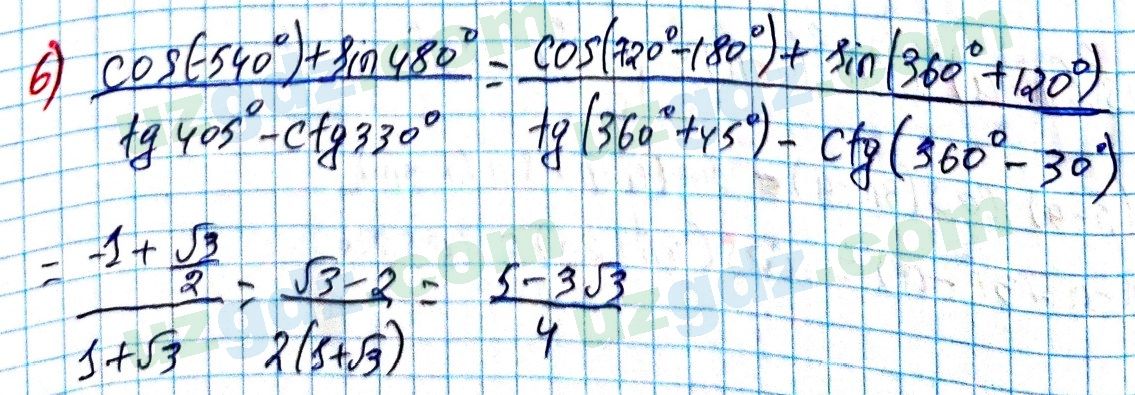 б) (cos(-540°) + sin 480°)/(tg 405° - ctg 330°) = (cos(720° - 180°) + sin(360° + 120°))/(tg(360° + 45°) - ctg(360° - 30°))
= (-1 + √3/2)/(1 + √3) = (√3 - 2)/(2(1 + √3)) = (5 - 3√3)/4
uzgdz.com
uzgdz.com
uzgdz.com
uzgdz.com